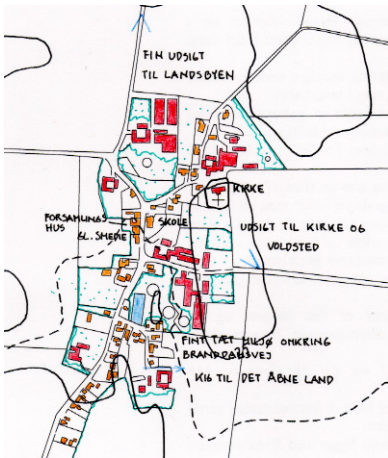 FIN UDSIGT
TIL LANDSBYEN
KIRKE
FORSAMLINGS
HUS
SKOLE
GL. SMEDIE
UDSIGT TIL KIRKE OG
VOLDSTED
FINT TÆT MILJØ OMKRING
BRANDDAMSVEJ
KIG TIL DET ÅBNE LAND